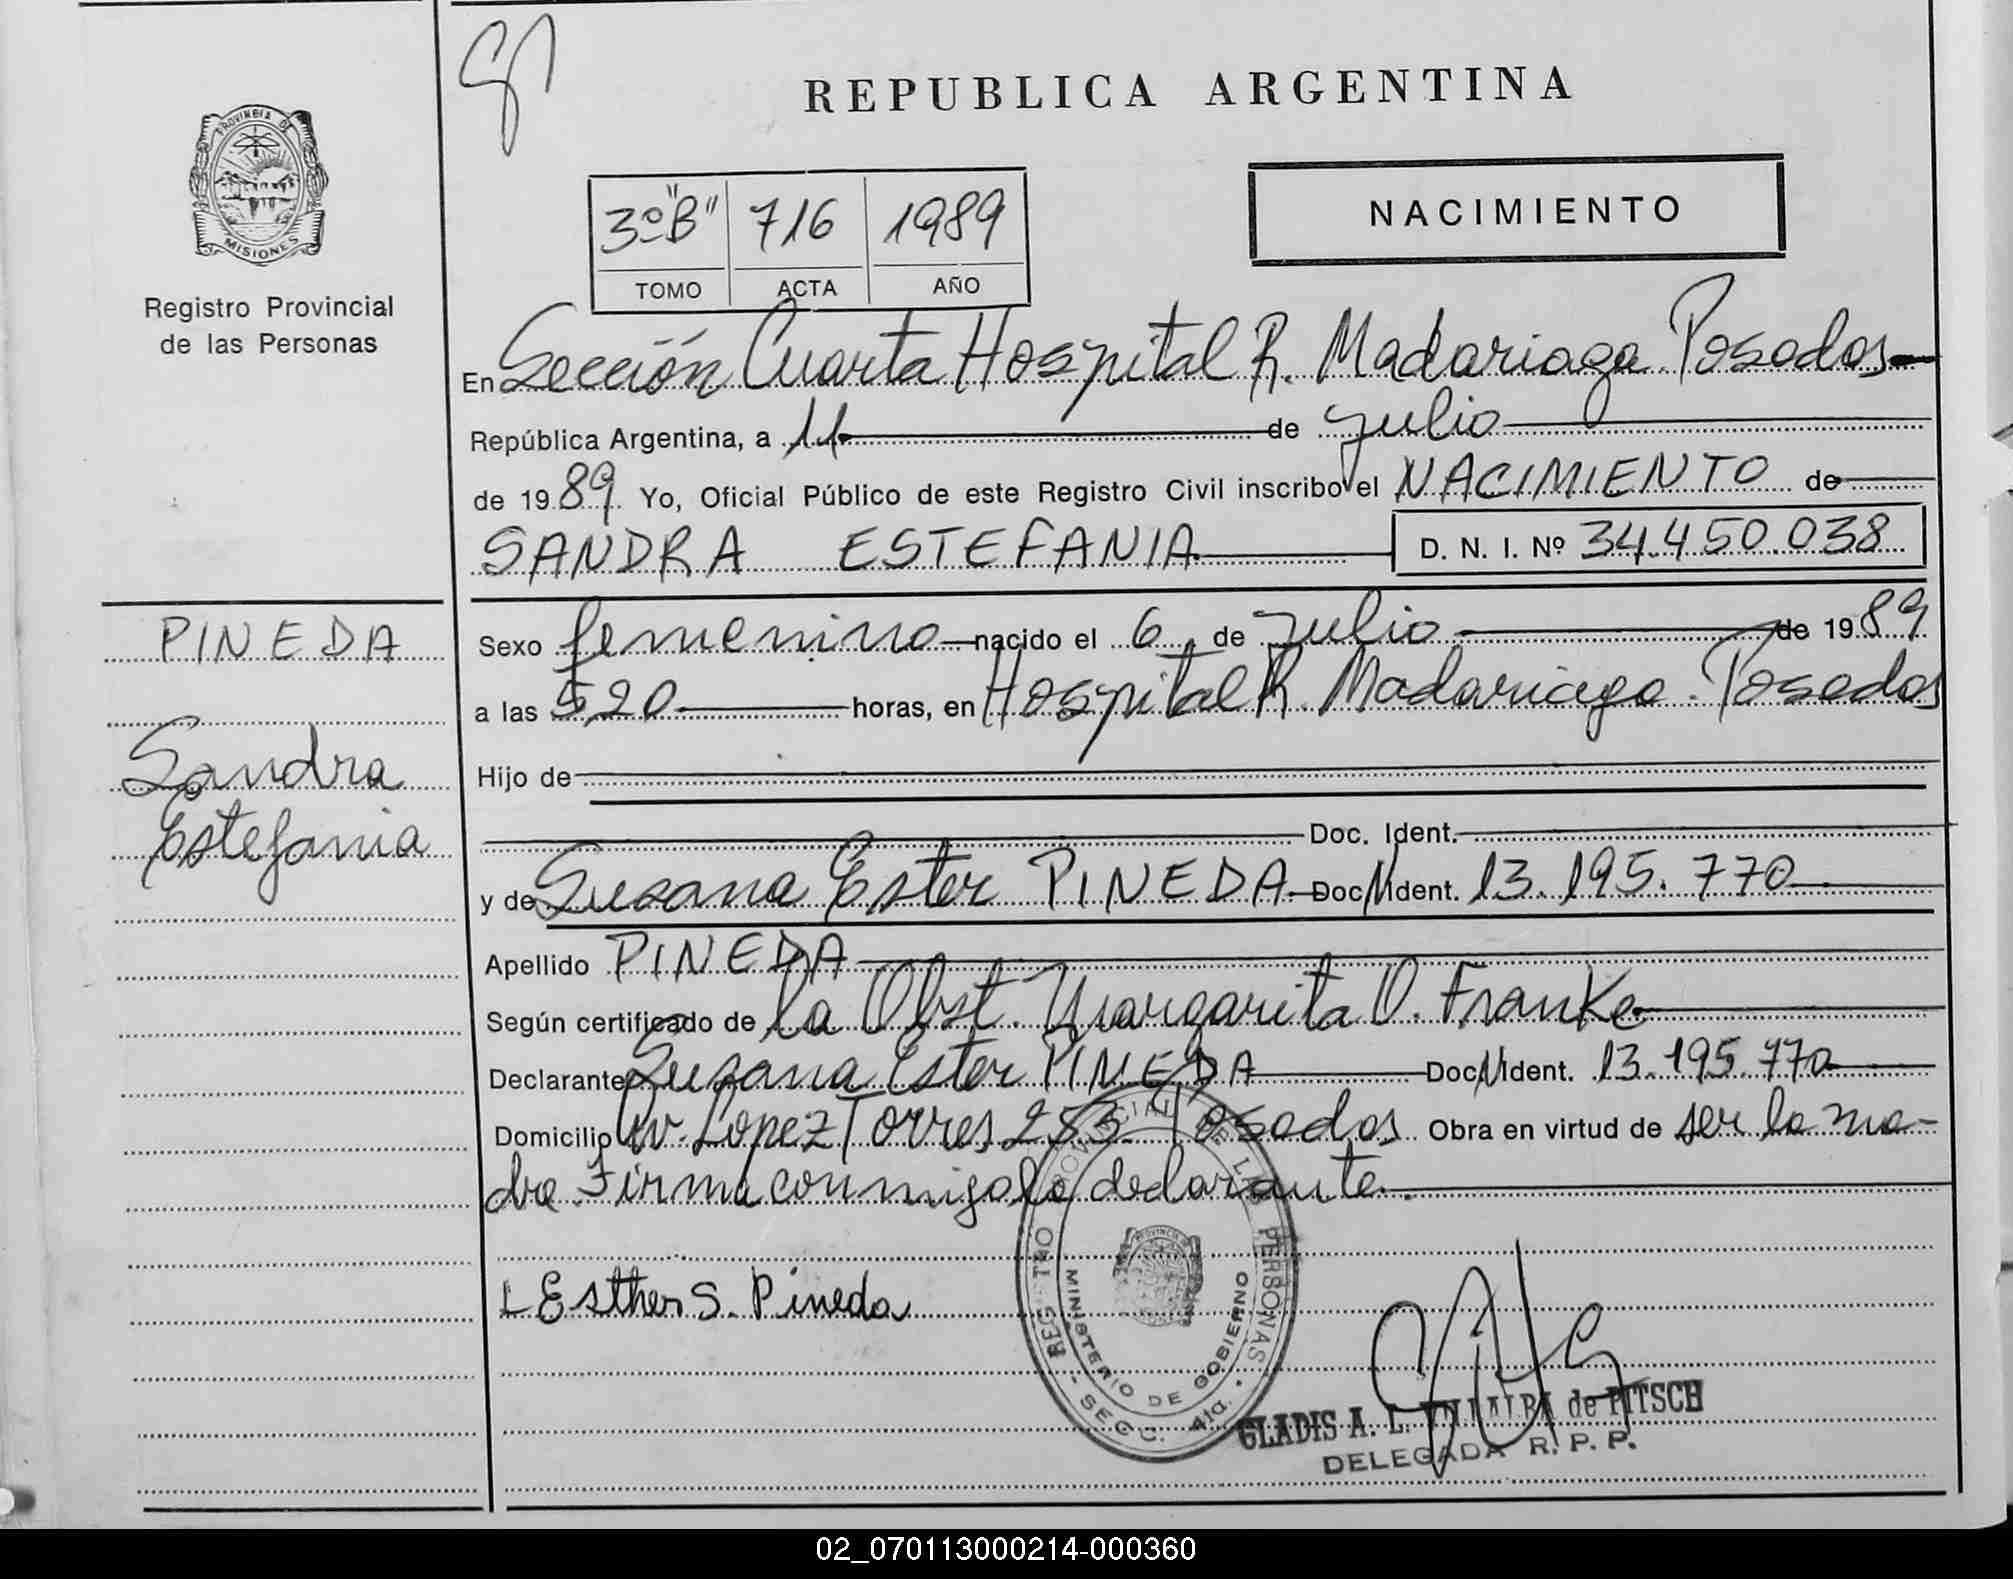 REPUBLICA ARGENTINA
PROVINCIA DE
MISIONES
Registro Provincial
de las Personas
3º "B" 716 1989
TOMO ACTA AÑO
NACIMIENTO
En Sección Cuarta Hospital R. Madariaga. Posadas
República Argentina, a 11 de julio
de 1989 Yo, Oficial Público de este Registro Civil inscribo el NACIMIENTO de
SANDRA ESTEFANIA D. N. I. Nº 34.450.038
PINEDA
Sandra
Estefania
Sexo femenino nacido el 6 de julio de 1989
a las 5,20 horas, en Hospital R. Madariaga. Posadas
Hijo de
Doc. Ident.
y de Susana Ester PINEDA Doc. Ident. 13.195.770
Apellido PINEDA
Según certificado de la Obst. Margarita O. Franke
Declarante Susana Ester PINEDA Doc. Ident. 13.195.770
Domicilio Av. Lopez Torres 253. Posadas Obra en virtud de ser la ma-
dre. Firma conmigo la declarante.
Esther S. Pineda
REGISTRO PROVINCIAL DE LAS PERSONAS
MINISTERIO DE GOBIERNO
SECC. 4ta.
GLADIS A. L. VILLALBA de PITSCH
DELEGADA R. P. P.
02_070113000214-000360